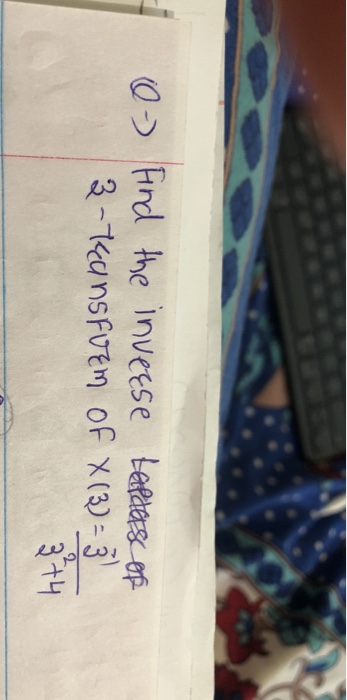 Q → Find the inverse Laplace of
Z-Transform of X(z) = z⁻¹ / z²+4